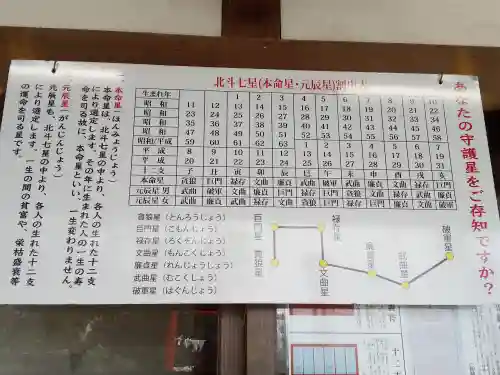 あなたの守護星をご存知ですか
北斗七星(本命星・元辰星)割出
生まれ年 1 2 3 4 5 6 7 8 9 10
昭和 11 12 13 14 15 16 17 18 19 20 21 22
昭和 23 24 25 26 27 28 29 30 31 32 33 34
昭和 35 36 37 38 39 40 41 42 43 44 45 46
昭和 47 48 49 50 51 52 53 54 55 56 57 58
昭和/平成 59 60 61 62 63 1 2 3 4 5 6 7
平成 8 9 10 11 12 13 14 15 16 17 18 19
平成 20 21 22 23 24 25 26 27 28 29 30 31
十二支 子 丑 寅 卯 辰 巳 午 未 申 酉 戌 亥
本命星 貪狼 巨門 禄存 文曲 廉貞 武曲 破軍 武曲 廉貞 文曲 禄存 巨門
元辰星 男 武曲 破軍
元辰星 女 武曲
貪狼星(とんろうじょう)
巨門星(こもんじょう)
禄存星(ろくぞんじょう)
文曲星(もんこくじょう)
廉貞星(れんじょうじょう)
武曲星(むこくじょう)
破軍星(はぐんじょう)
巨門星
貪狼星
禄存星
文曲星
廉貞星
武曲星
破軍星
本命星(ほんみょうじょう)
本命星は、北斗七星の中より、各人の生れた十二支
により選定します。その年に生まれた人の一生の寿
命を司る故に、本命星といい、一生変わりません。
元辰星(がんじんじょう)
元辰星も、北斗七星の中より、各人の生れた十二支
により選定します。一生の間の貧富や、栄枯盛衰等
の運命を司る星です。